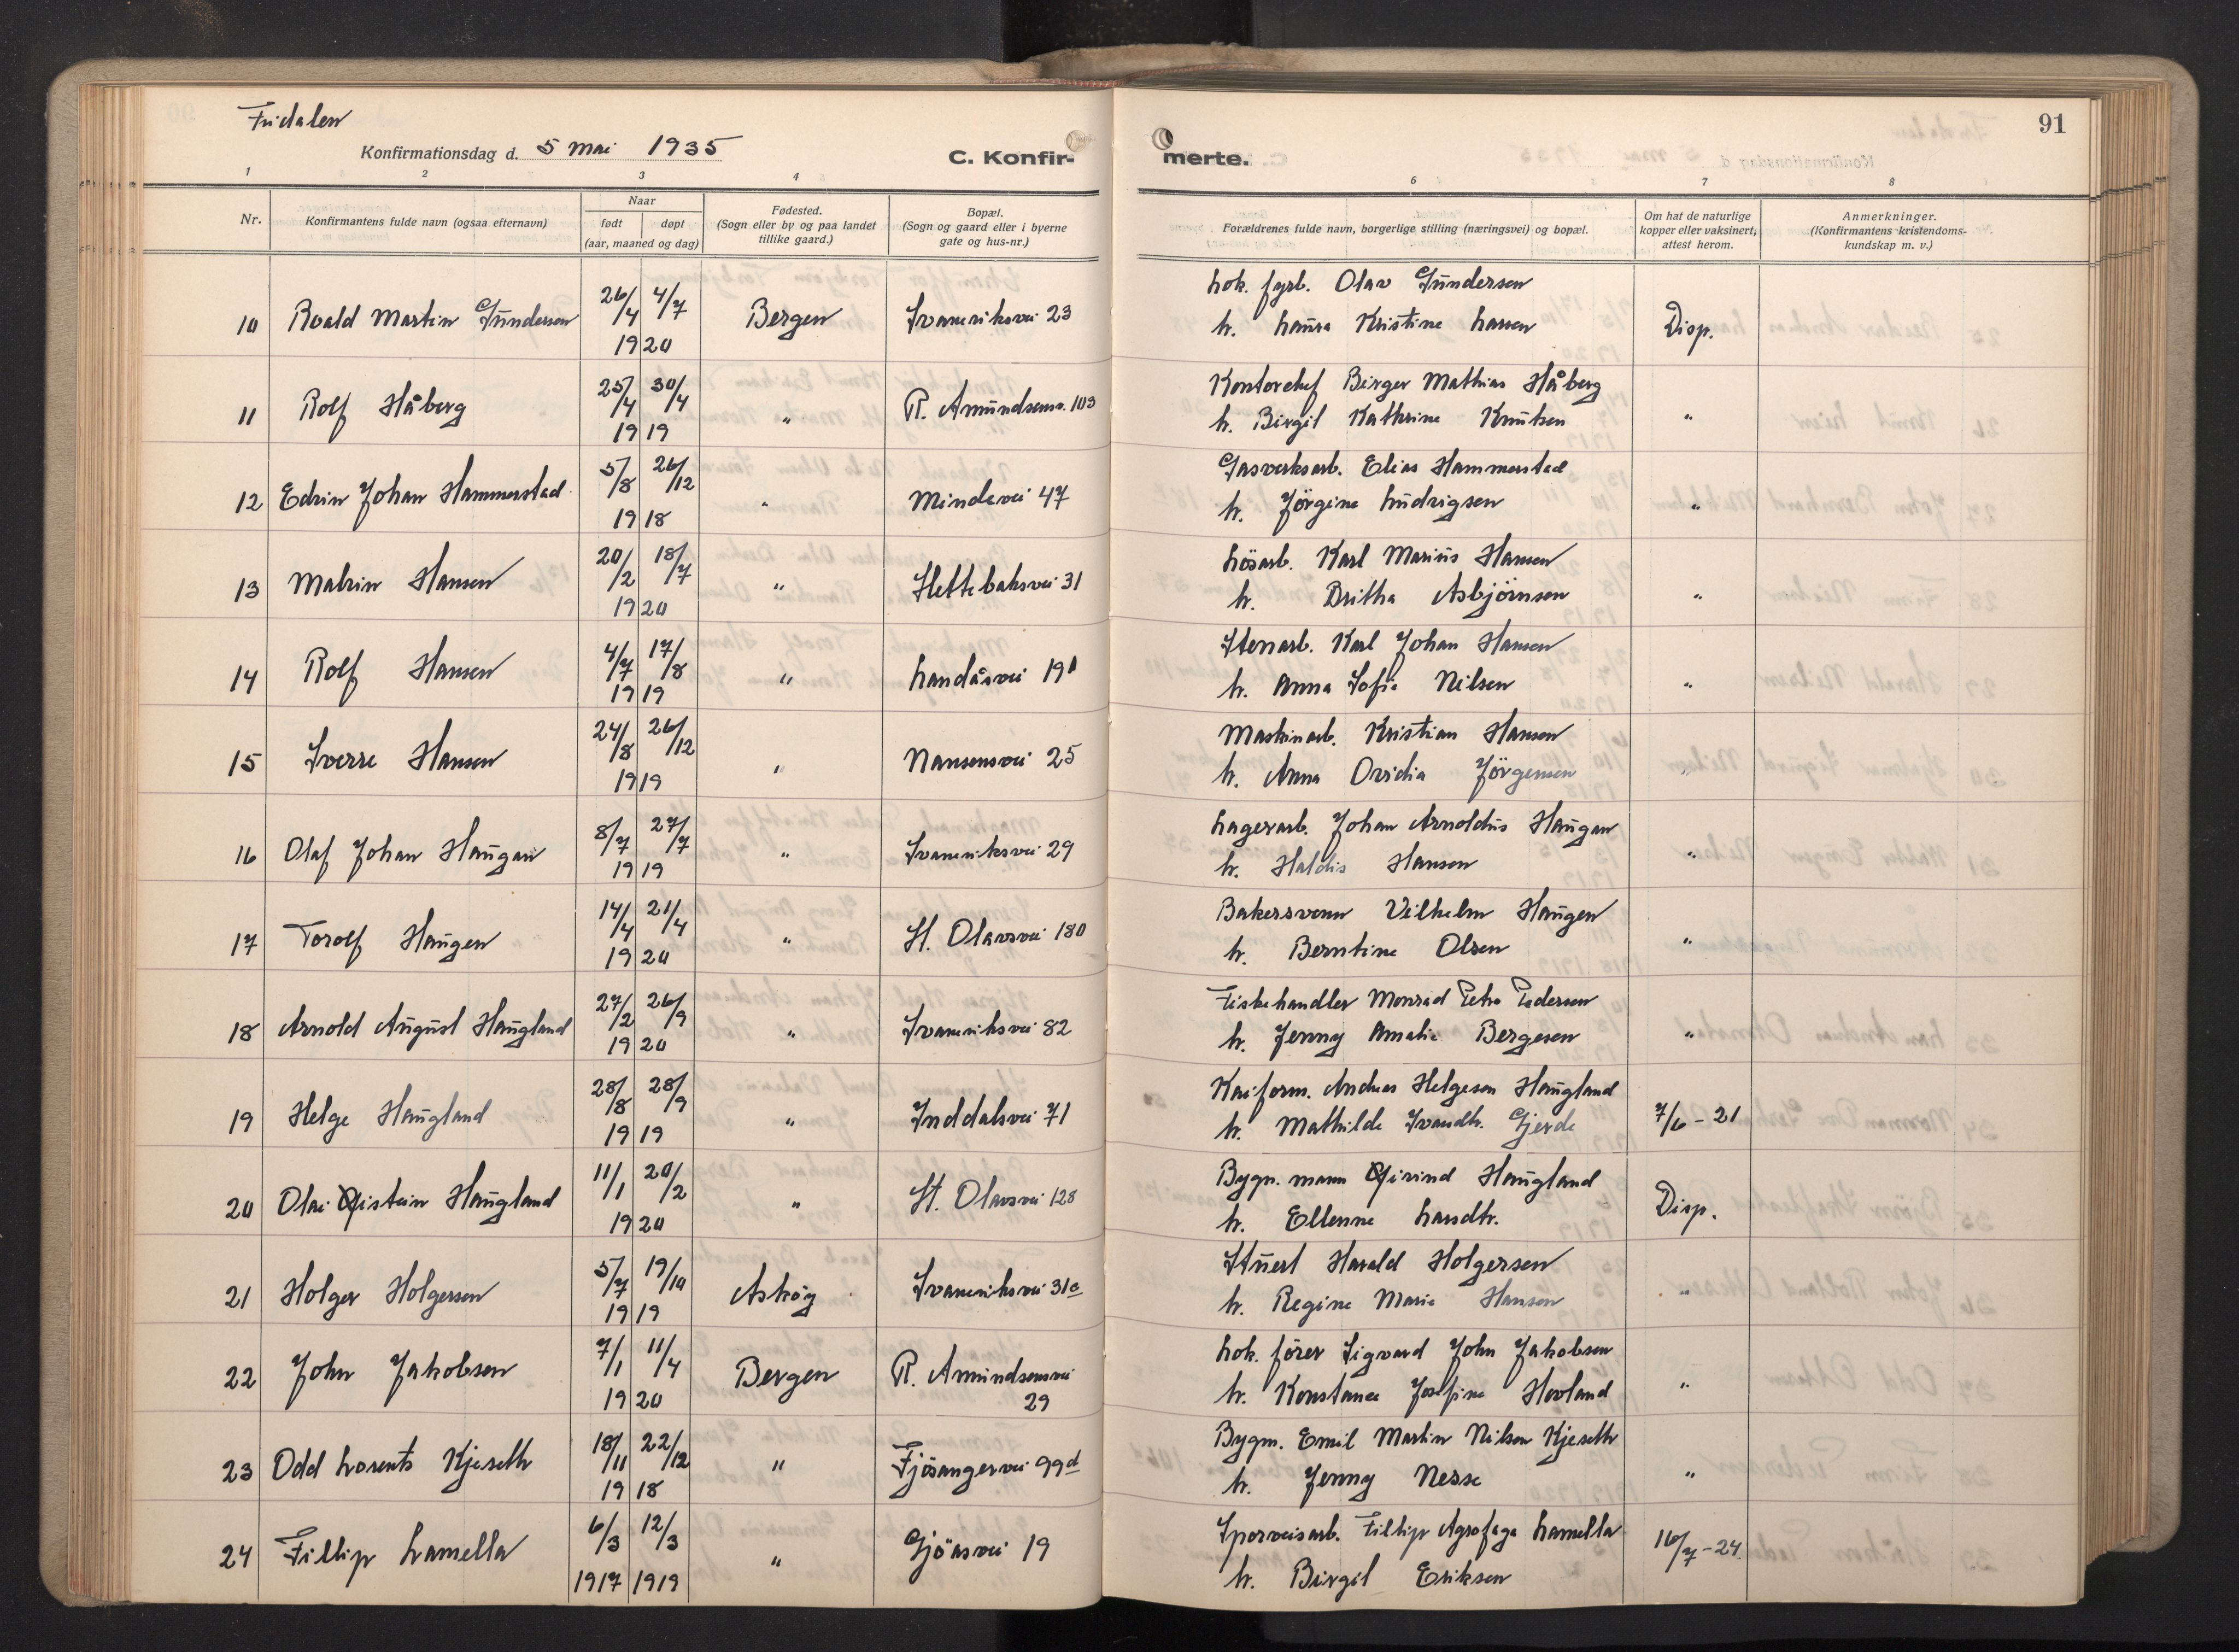 Fridalen
Konfirmationsdag d. 5 mai 1935
C. Konfir-
merte.
91
1 2 3 4 6 7 8
Nr.
Konfirmantens fulde navn (ogsaa efternavn)
Naar
født døpt
(aar, maaned og dag)
Fødested.
(Sogn eller by og paa landet
tillike gaard.)
Bopæl.
(Sogn og gaard eller i byerne
gate og hus-nr.)
Forældrenes fulde navn, borgerlige stilling (næringsvei) og bopæl.
Om hat de naturlige
kopper eller vaksinert,
attest herom.
Anmerkninger.
(Konfirmantens kristendoms-
kundskap m. v.)
26/4 4/7 Lok. fyrb. Olav Gundersen
10 Roald Martin Gundersen Bergen Svaneviksvei 23 h. Laura Kristine Larsen Disp.
1920
25/4 30/4 Kontorchef Birger Mathias Håberg
11 Rolf Håberg " R. Amundsensv. 103 h. Birgit Kathrine Knutsen "
1919
5/8 26/12 Gasverksarb. Elias Hammerstad
12 Edvin Johan Hammerstad " Mindevei 47 h. Jörgine Ludvigsen "
1918
20/2 18/7 Lösarb. Karl Marius Hansen
13 Malvin Hansen " Slettebaksvei 31 h. Britha Asbjörnsen "
1920
4/7 17/8 Stenarb. Karl Johan Hansen
14 Rolf Hansen " Landåsvei 19 h. Anna Sofie Nilsen "
1919
24/8 26/12 Maskinarb. Kristian Hansen
15 Sverre Hansen " Nansensvei 25 h. Anna Ovidia Jörgensen "
1919
8/7 27/7 Lagerarb. Johan Arnoldus Haugan
16 Olaf Johan Haugan " Svaneviksvei 29 h. Haldis Hansen "
1919
14/4 21/4 Bakersvenn Vilhelm Haugen
17 Torolf Haugen " St. Olavsvei 180 h. Berntine Olsen "
1920
27/2 26/9 Fiskehandler Monrad Petro Pedersen
18 Arnold August Haugland " Svaneviksvei 82 h. Jenny Amalie Bergesen "
1920
28/8 28/9 Kaiform. Andreas Helgesen Haugland
19 Helge Haugland " Inddalsvei 71 h. Mathilde Ivarsdtr. Gjerde 7/6-21
1919
11/1 20/2 Bygn. mann Øivind Haugland
20 Olai Øistein Haugland " St. Olavsvei 128 h. Ellenne Larsdtr. Disp.
1920
5/7 19/10 Stuert Harald Holgersen
21 Holger Holgersen Askøy Svaneviksvei 31c h. Regine Marie Hansen "
1919
7/1 11/4 Lok. fører Sigvard John Jakobsen
22 John Jakobsen Bergen R. Amundsensvei h. Konstance Josefine Hovland "
1920 29
18/11 22/12 Bygm. Emil Martin Nilsen Kjeseth
23 Odd Lorents Kjeseth " Fjösangervei 99d h. Jenny Nesse "
1918
6/3 12/3 Sporveisarb. Fillip Agrofage Lamella
24 Fillip Lamella " Gjöasvei 19 h. Birgit Eriksen 16/7-24.
1917 1919